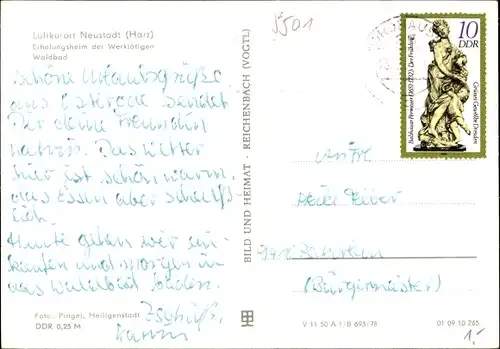 Luftkurort Neustadt (Harz)
Erholungsheim der Werktätigen
Waldbad
5501
schöne Urlaubsgrüße
aus sendet
Dir deine Freundin
Katrin. Das Wetter
hier ist schön warm,
das Essen aber scheuß-
lich.
Heute gehen wir ein-
kaufen und morgen in
das Waldbad baden.
Tschüß,
Katrin
Foto: Pingel, Heiligenstadt
DDR 0,25 M
BILD UND HEIMAT · REICHENBACH (VOGTL)
10
DDR
Balthasar Permoser (1651-1732), Der Frühling
Grünes Gewölbe Dresden
(Bürgermeister)
V 11 50 A 1/B 693/78
01 09 10 285
1,-